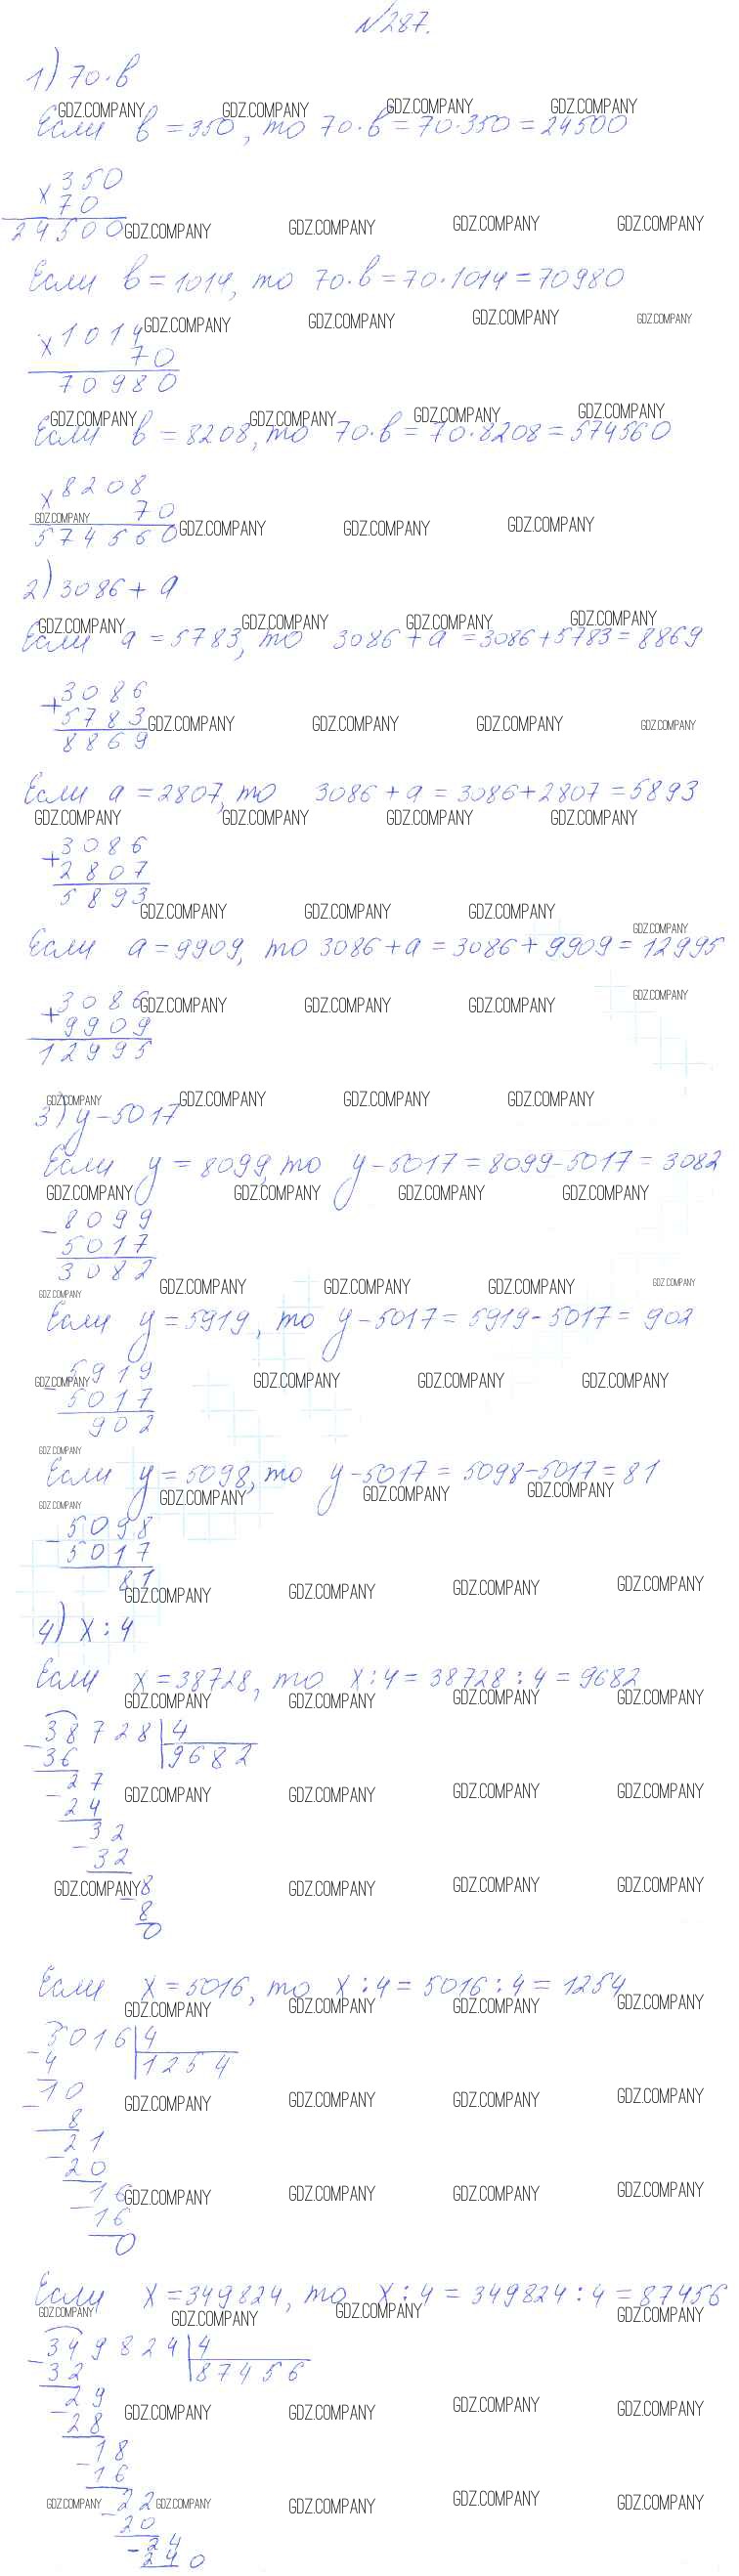 №287.
1) 70·b
Если b = 350, то 70·b = 70·350 = 24500
× 350
70
24500
Если b = 1014, то 70·b = 70·1014 = 70980
× 1014
70
70980
Если b = 8208, то 70·b = 70·8208 = 574560
× 8208
70
574560
2) 3086 + a
Если a = 5783, то 3086 + a = 3086 + 5783 = 8869
+ 3086
5783
8869
Если a = 2807, то 3086 + a = 3086 + 2807 = 5893
+ 3086
2807
5893
Если a = 9909, то 3086 + a = 3086 + 9909 = 12995
+ 3086
9909
12995
3) y – 5017
Если y = 8099, то y – 5017 = 8099 – 5017 = 3082
– 8099
5017
3082
Если y = 5919, то y – 5017 = 5919 – 5017 = 902
– 5919
5017
902
Если y = 5098, то y – 5017 = 5098 – 5017 = 81
– 5098
5017
81
4) x : 4
Если x = 38728, то x : 4 = 38728 : 4 = 9682
– 38728 | 4
36 | 9682
– 27
24
– 32
32
– 8
8
0
Если x = 5016, то x : 4 = 5016 : 4 = 1254
– 5016 | 4
4 | 1254
– 10
8
– 21
20
– 16
16
0
Если x = 349824, то x : 4 = 349824 : 4 = 87456
– 349824 | 4
32 | 87456
– 29
28
– 18
16
– 22
20
– 24
24 0
GDZ.COMPANY